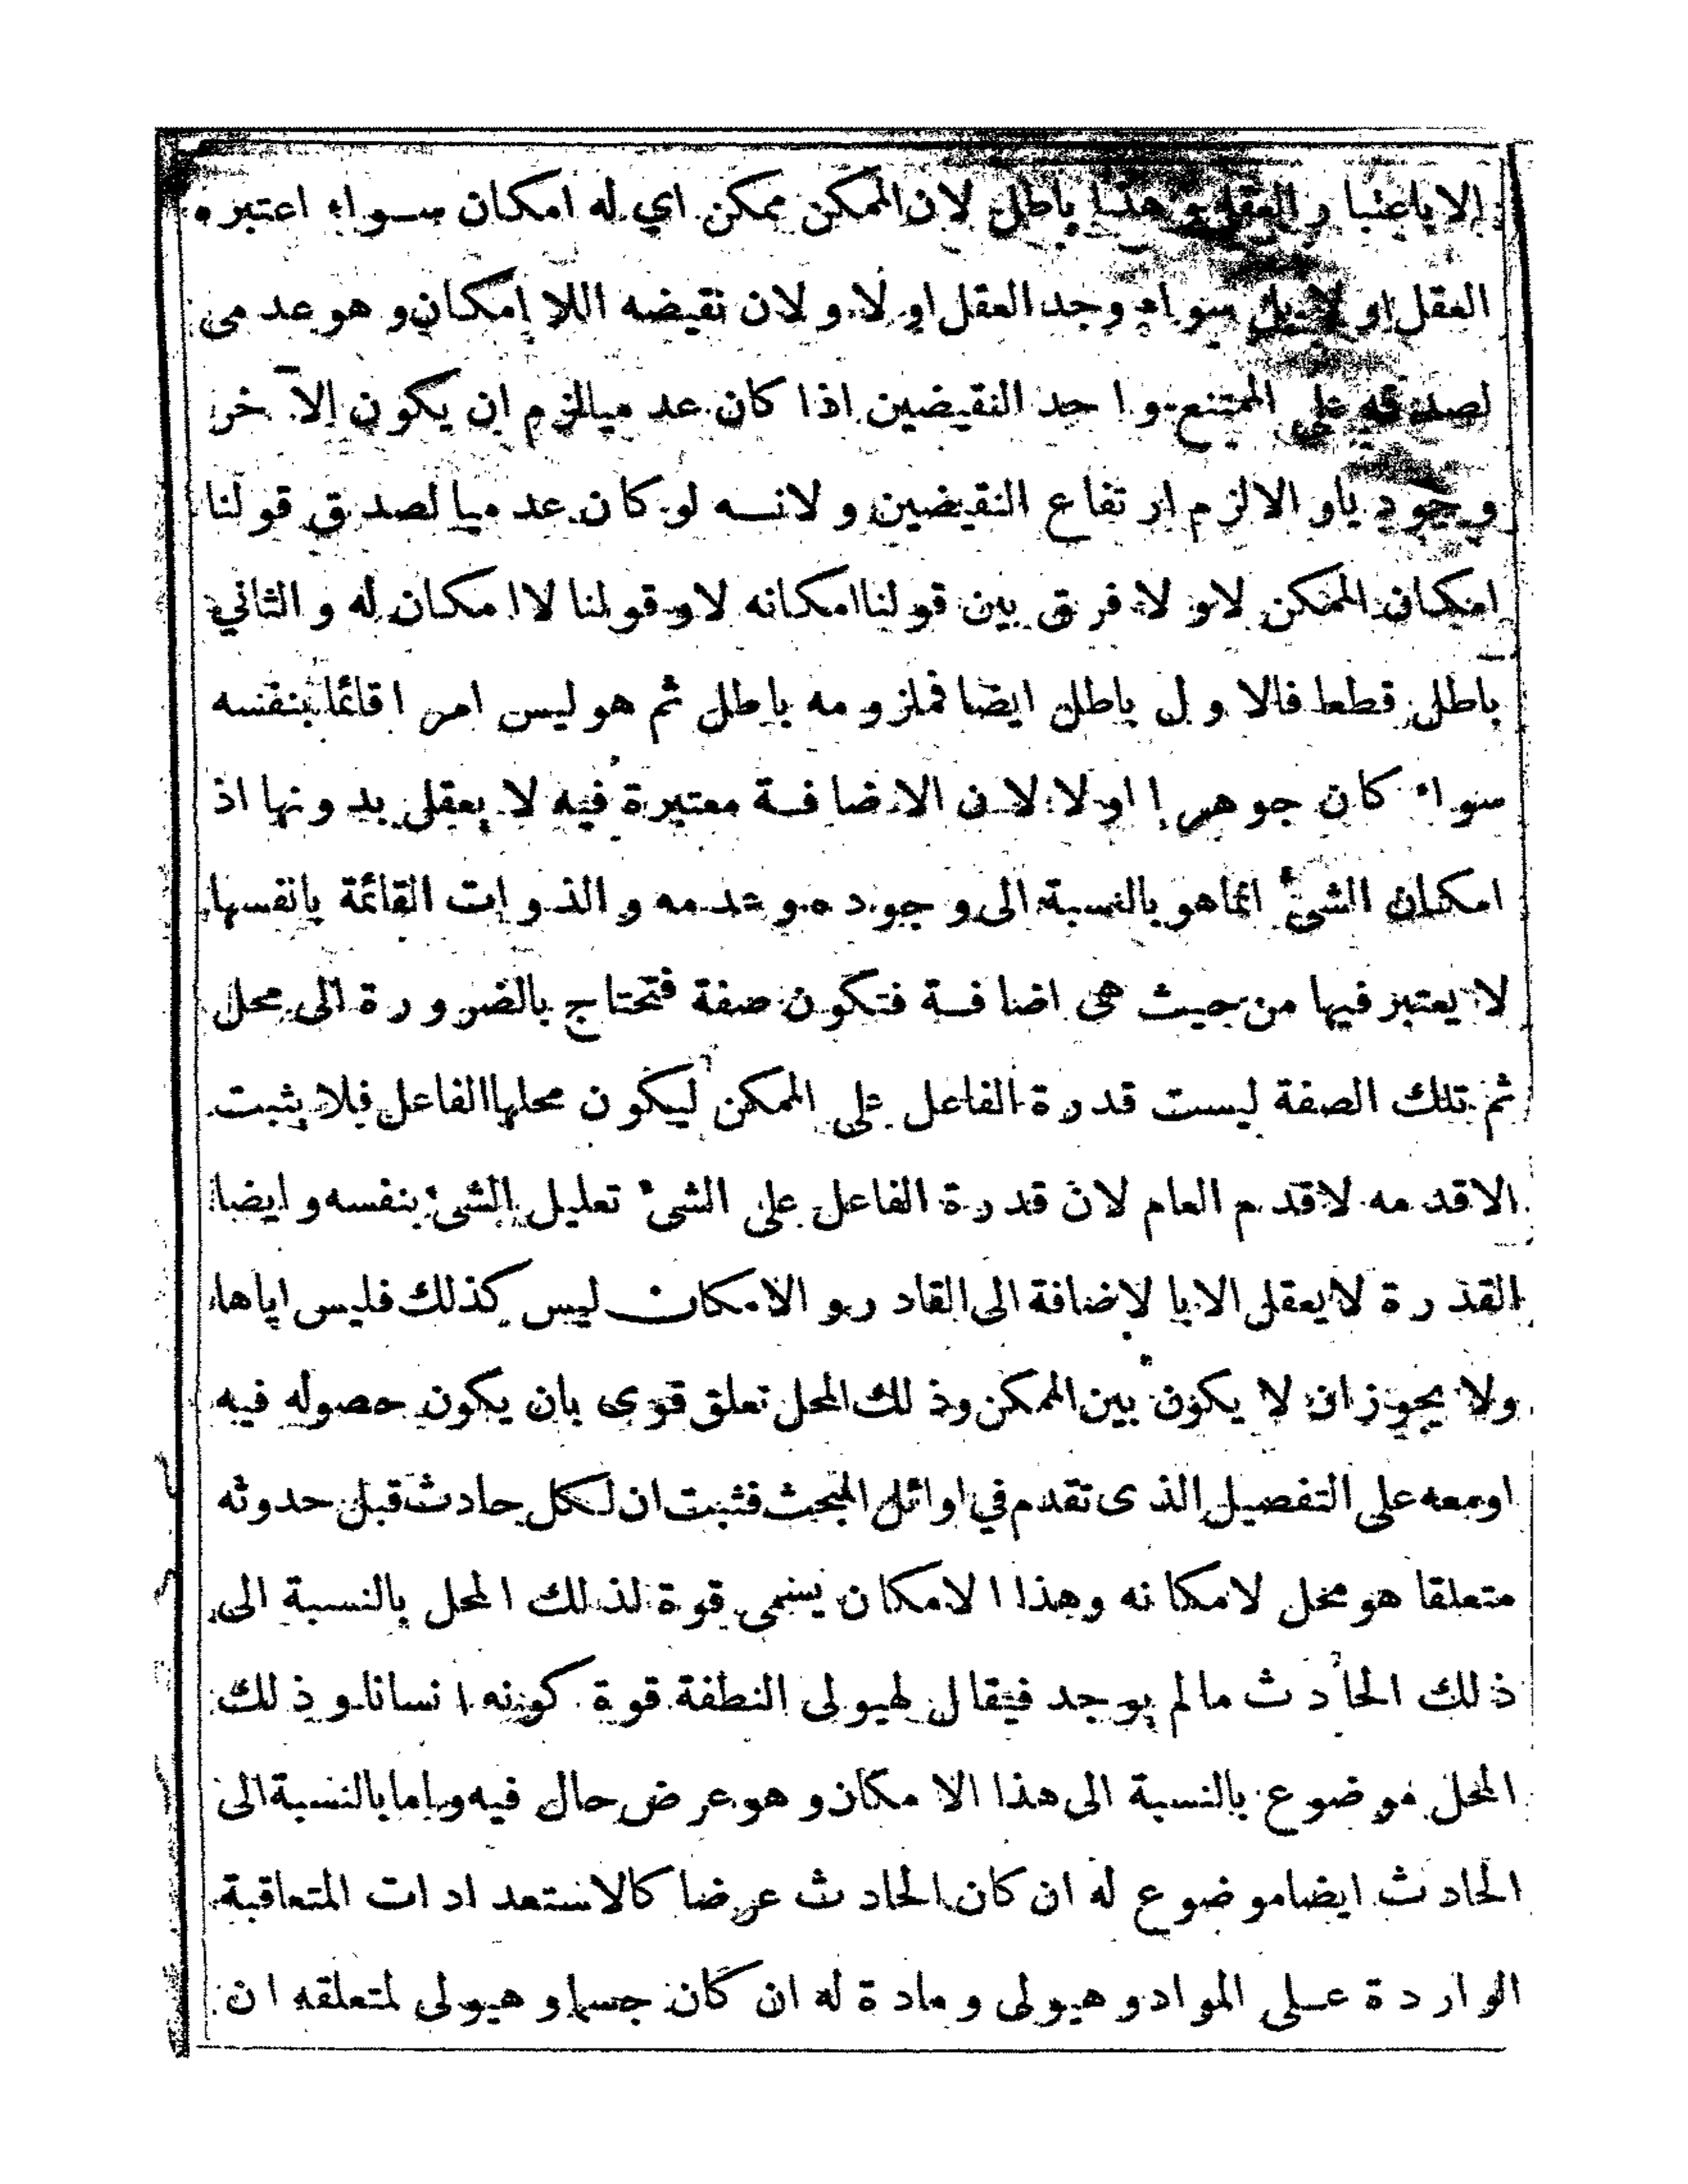 الا باعتبار العقل و هذا باطل لان الممكن ممكن اي له امكان سواء اعتبره
العقل او لا بل سواء وجد العقل او لا و لان نقيضه اللا إمكان و هو عدمى
لصدقه على الممتنع و احد النقيضين اذا كان عدميا لزم ان يكون الآخر
وجوديا و الا لزم ارتفاع النقيضين و لانه لو كان عدميا لصدق قولنا
امكان الممكن لا و لا فرق بين قولنا امكانه لا و قولنا لا امكان له و الثاني
باطل قطعا فالاول باطل ايضا فملزومه باطل ثم هو ليس امرا قائما بنفسه
سواء كان جوهرا او لا لان الاضافة معتبرة فيه لا يعقل بدونها اذ
امكان الشئ انما هو بالنسبة الى وجوده و عدمه و الذوات القائمة بانفسها
لا يعتبر فيها من حيث هى اضافة فتكون صفة فتحتاج بالضرورة الى محل
ثم تلك الصفة ليست قدرة الفاعل على الممكن ليكون محلها الفاعل فلا يثبت
الا قدمه لا قدم العام لان قدرة الفاعل على الشئ تعليل الشئ بنفسه و ايضا
القدرة لا يعقل الا با لاضافة الى القادر و الامكان ليس كذلك فليس اياها
ولا يجوز ان لا يكون بين الممكن وذلك المحل تعلق قوى بان يكون حصوله فيه
او معه على التفصيل الذى تقدم في اوائل المبحث فثبت ان لكل حادث قبل حدوثه
متعلقا هو محل لامكانه وهذا الامكان يسمى قوة لذلك المحل بالنسبة الى
ذلك الحادث ما لم يوجد فيقال لهيولى النطفة قوة كونه انسانا و ذلك
المحل موضوع بالنسبة الى هذا الامكان و هو عرض حال فيه و اما بالنسبة الى
الحادث ايضا موضوع له ان كان الحادث عرضا كالاستعدادات المتعاقبة
الواردة على المواد و هيولى و مادة له ان كان جسما و هيولى لمتعلقه ان